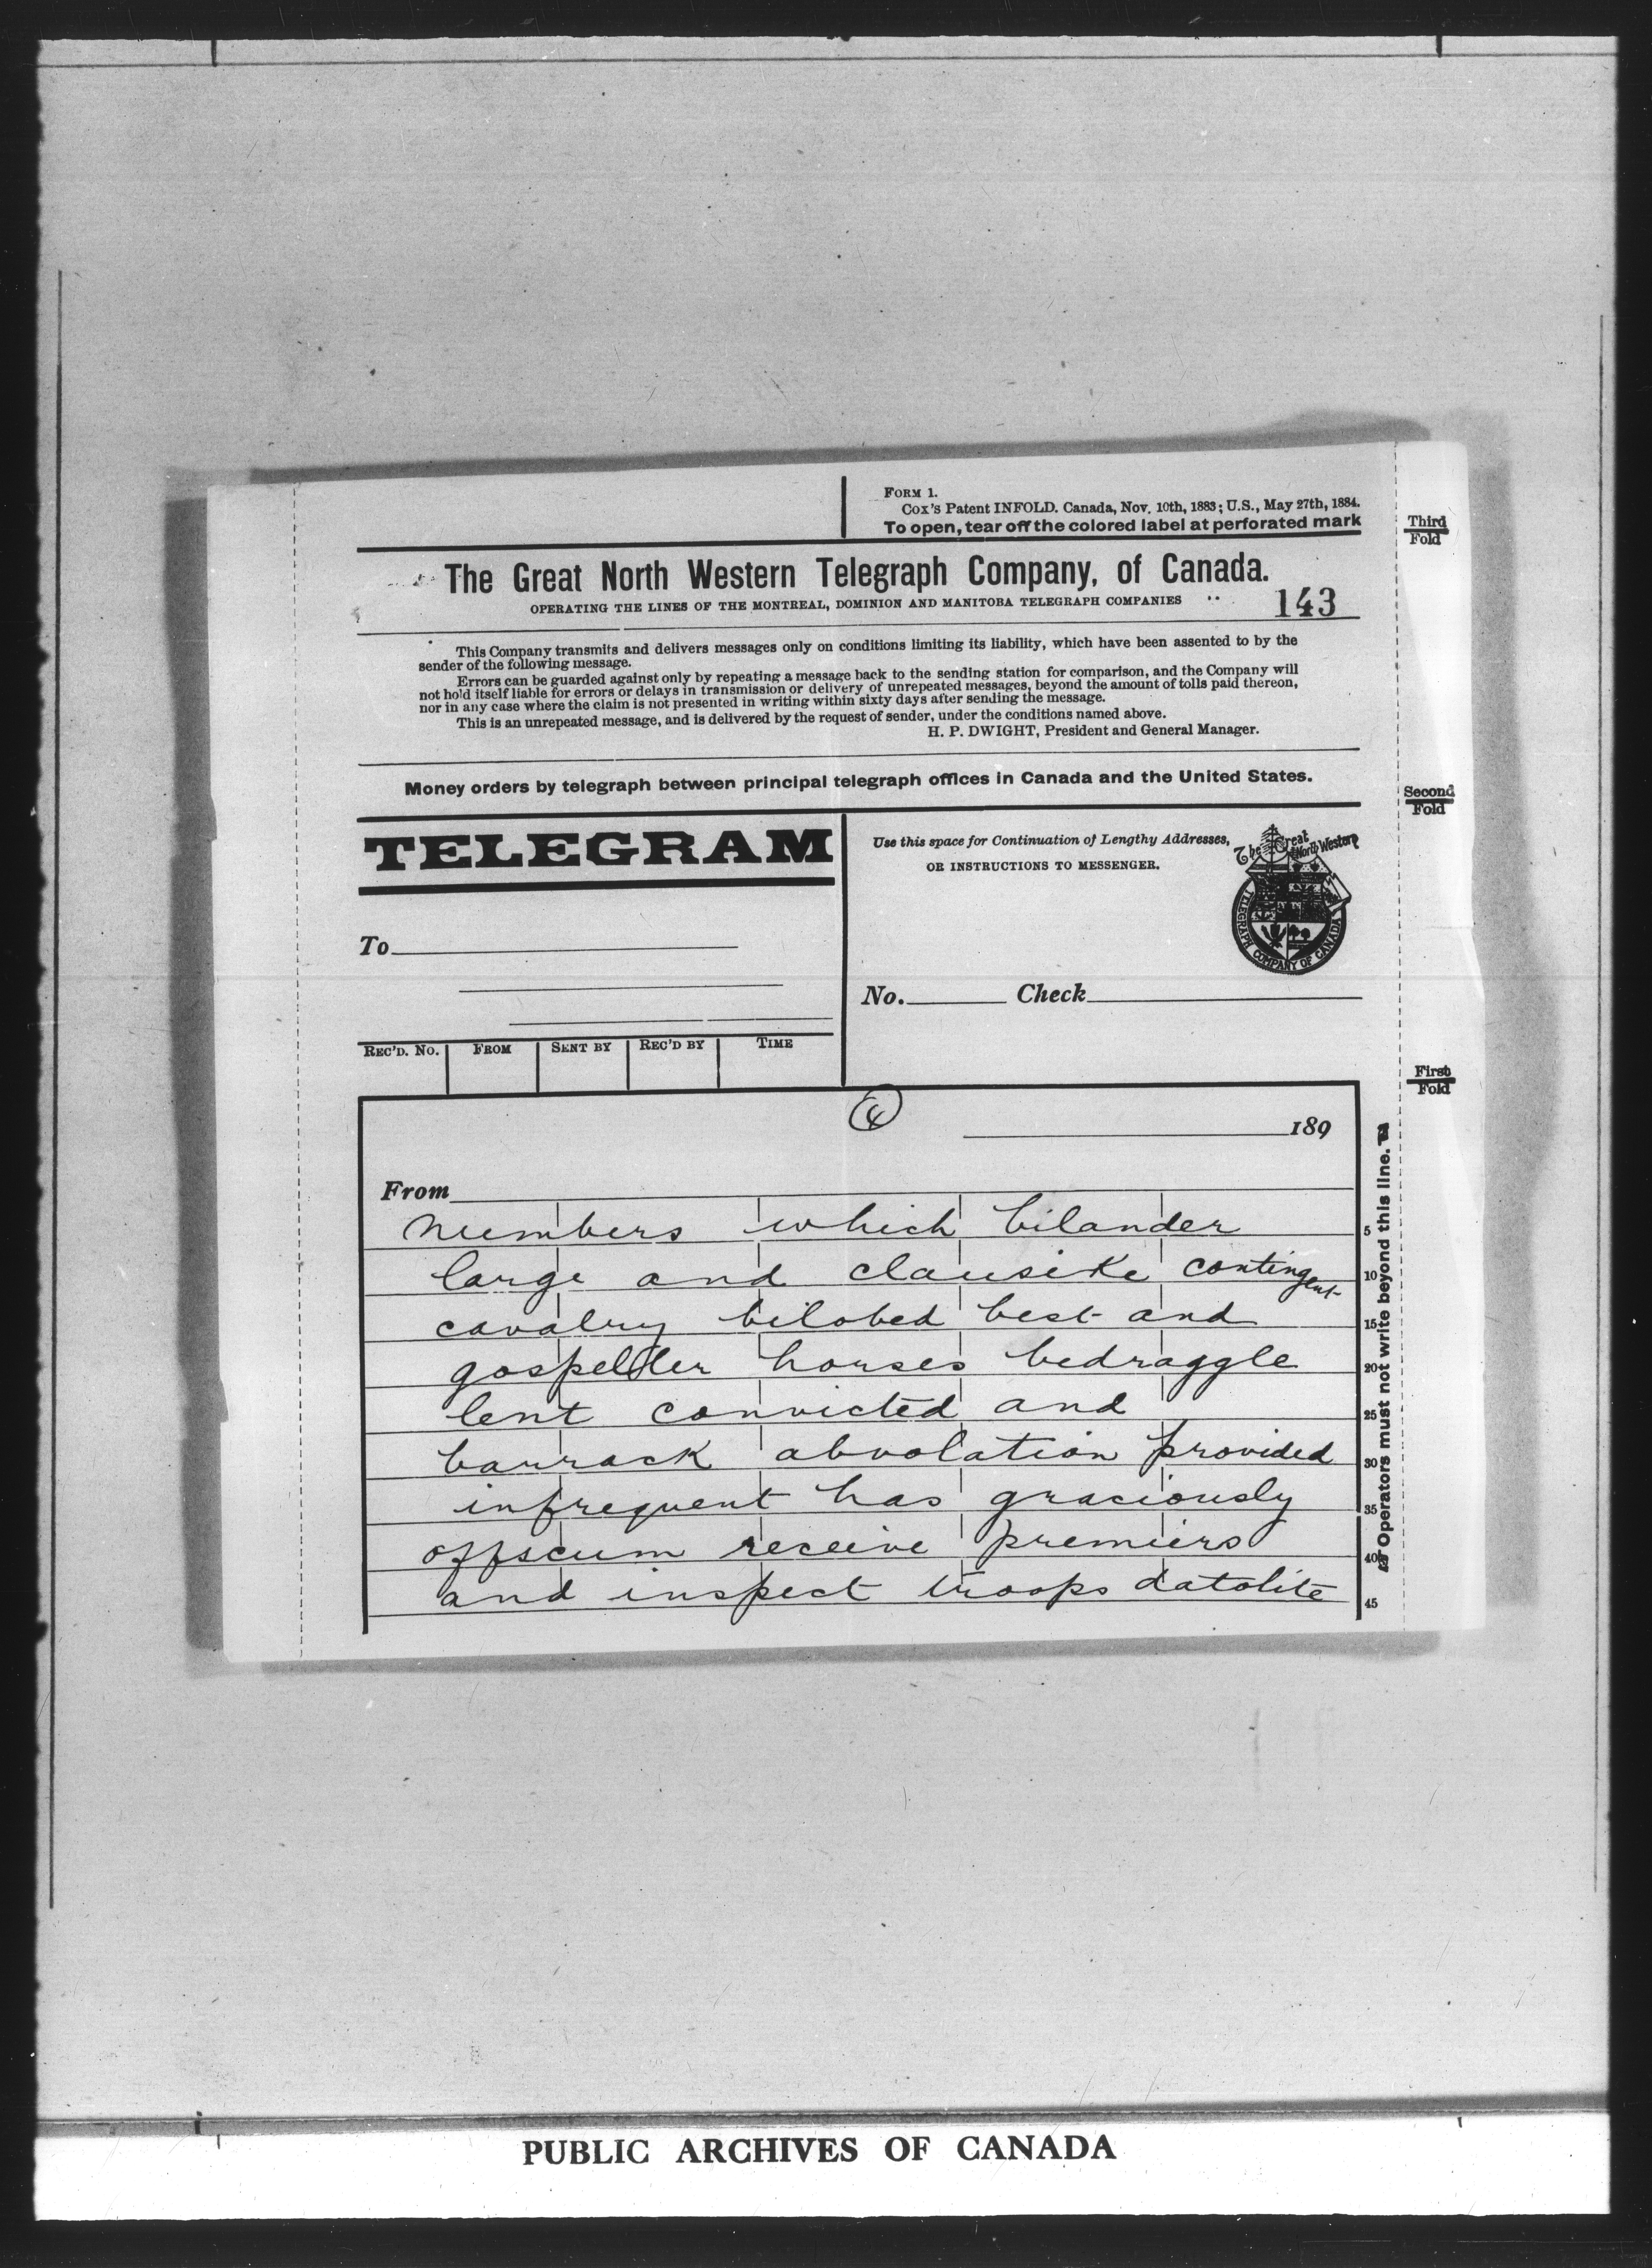 FORM 1.
Cox's Patent INFOLD. Canada, Nov. 10th, 1883; U.S., May 27th, 1884.
To open, tear off the colored label at perforated mark
Third
Fold
The Great North Western Telegraph Company, of Canada.
OPERATING THE LINES OF THE MONTREAL, DOMINION AND MANITOBA TELEGRAPH COMPANIES
143
This Company transmits and delivers messages only on conditions limiting its liability, which have been assented to by the
sender of the following message.
Errors can be guarded against only by repeating a message back to the sending station for comparison, and the Company will
not hold itself liable for errors or delays in transmission or delivery of unrepeated messages, beyond the amount of tolls paid thereon,
nor in any case where the claim is not presented in writing within sixty days after sending the message.
This is an unrepeated message, and is delivered by the request of sender, under the conditions named above.
H. P. DWIGHT, President and General Manager.
Money orders by telegraph between principal telegraph offices in Canada and the United States.
Second
Fold
TELEGRAM
Use this space for Continuation of Lengthy Addresses,
OR INSTRUCTIONS TO MESSENGER.
The Great North Western
TELEGRAPH COMPANY OF CANADA
To
No. Check
REC'D. No. FROM SENT BY REC'D BY TIME
First
Fold
4
189
From
numbers which bilander 5
large and clausike contingent 10
cavalry bilobed best and 15
gospeller horses bedraggle 20
lent convicted and 25
barrack abvolation provided 30
infrequent has graciously 35
offscum receive premiers 40
and inspect troops datolite 45
Operators must not write beyond this line.
PUBLIC ARCHIVES OF CANADA